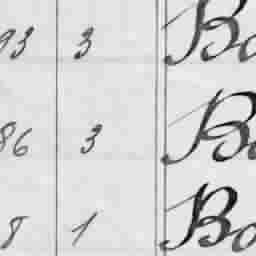 93 3 Bo
86 3 Bo
8 1 Bo